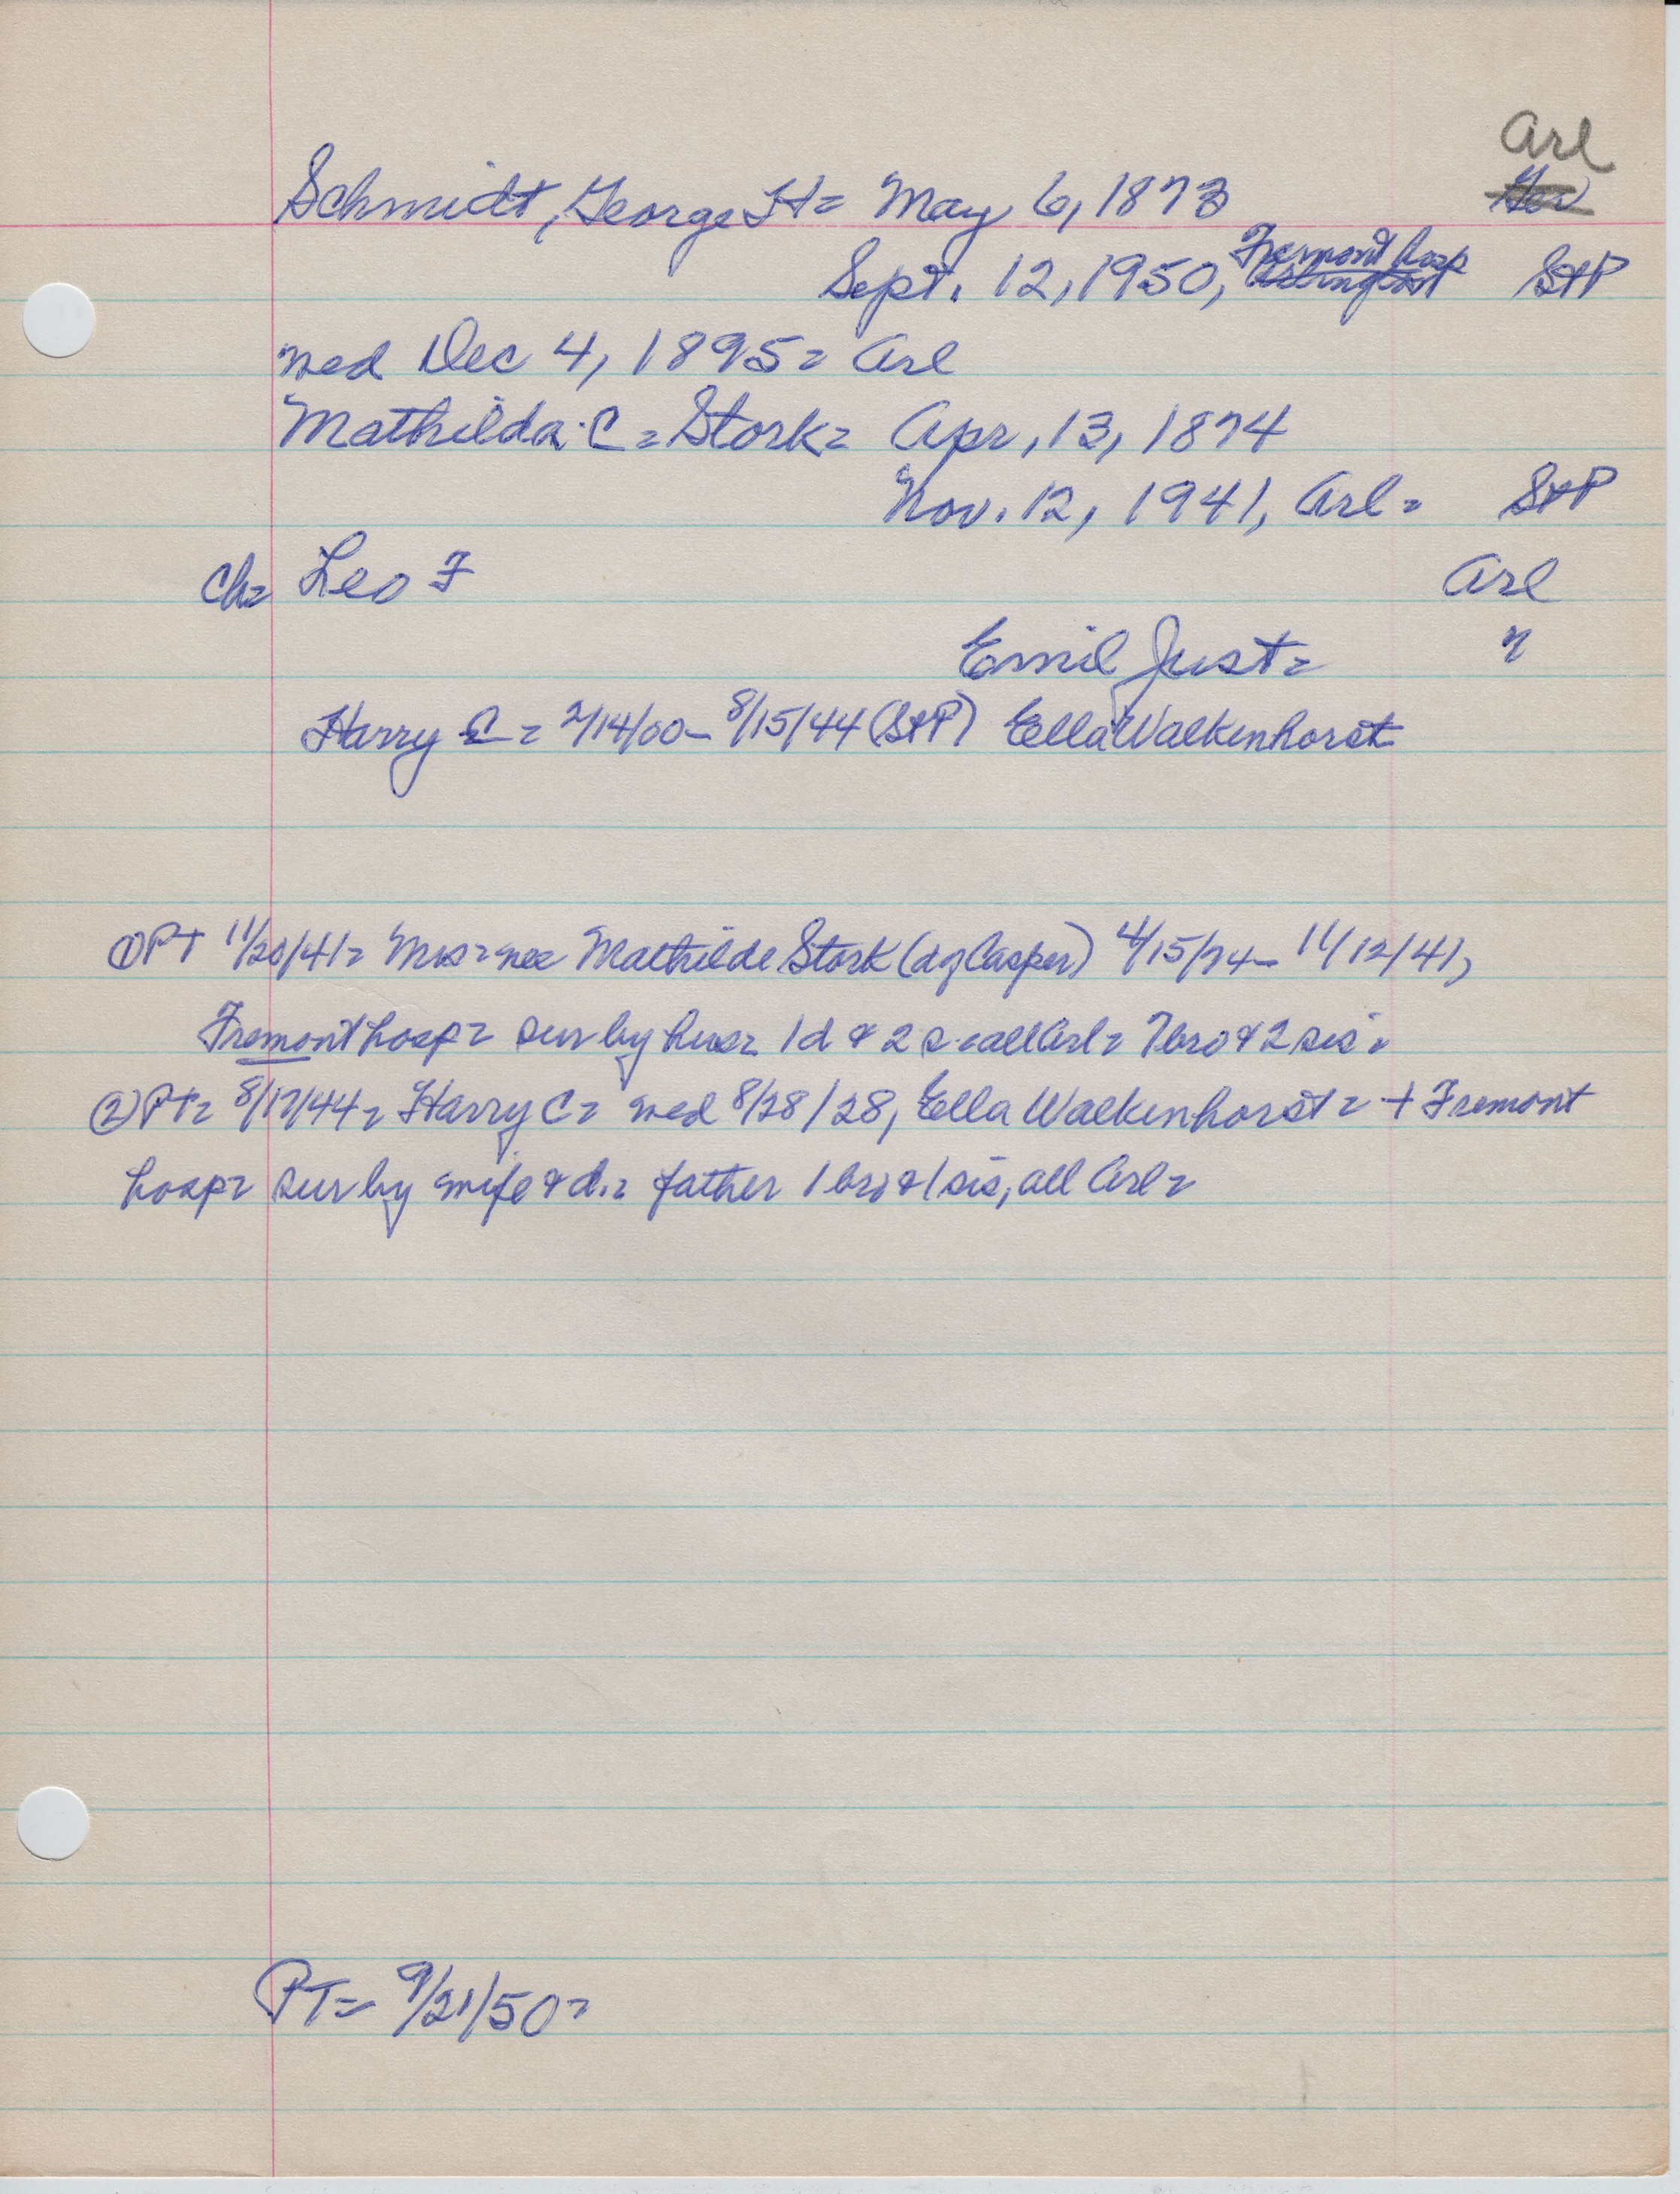 Arl
Schmidt, George H= May 6, 1873
Fremont hosp
Sept. 12, 1950, Arlington StP
wed Dec 4, 1895= Arl
Mathilda C= Stork= Apr, 13, 1874
Nov. 12, 1941, Arl= StP
Ch= Leo F Arl
Emil Just= "
Harry C= 2/14/00- 8/15/44 (StP) Ella Walkenhorst
① PT 11/20/41= Mrs= nee Mathilde Stork (dg Casper) 4/15/74- 11/12/41,
Fremont hosp= sur by hus= 1d & 2 s= all Arl= 7 bro & 2 sis=
② PT= 8/17/44= Harry C= wed 8/28/28, Ella Walkenhorst= + Fremont
hosp= sur by wife & d.= father 1 bro & 1 sis, all Arl=
PT= 9/21/50=